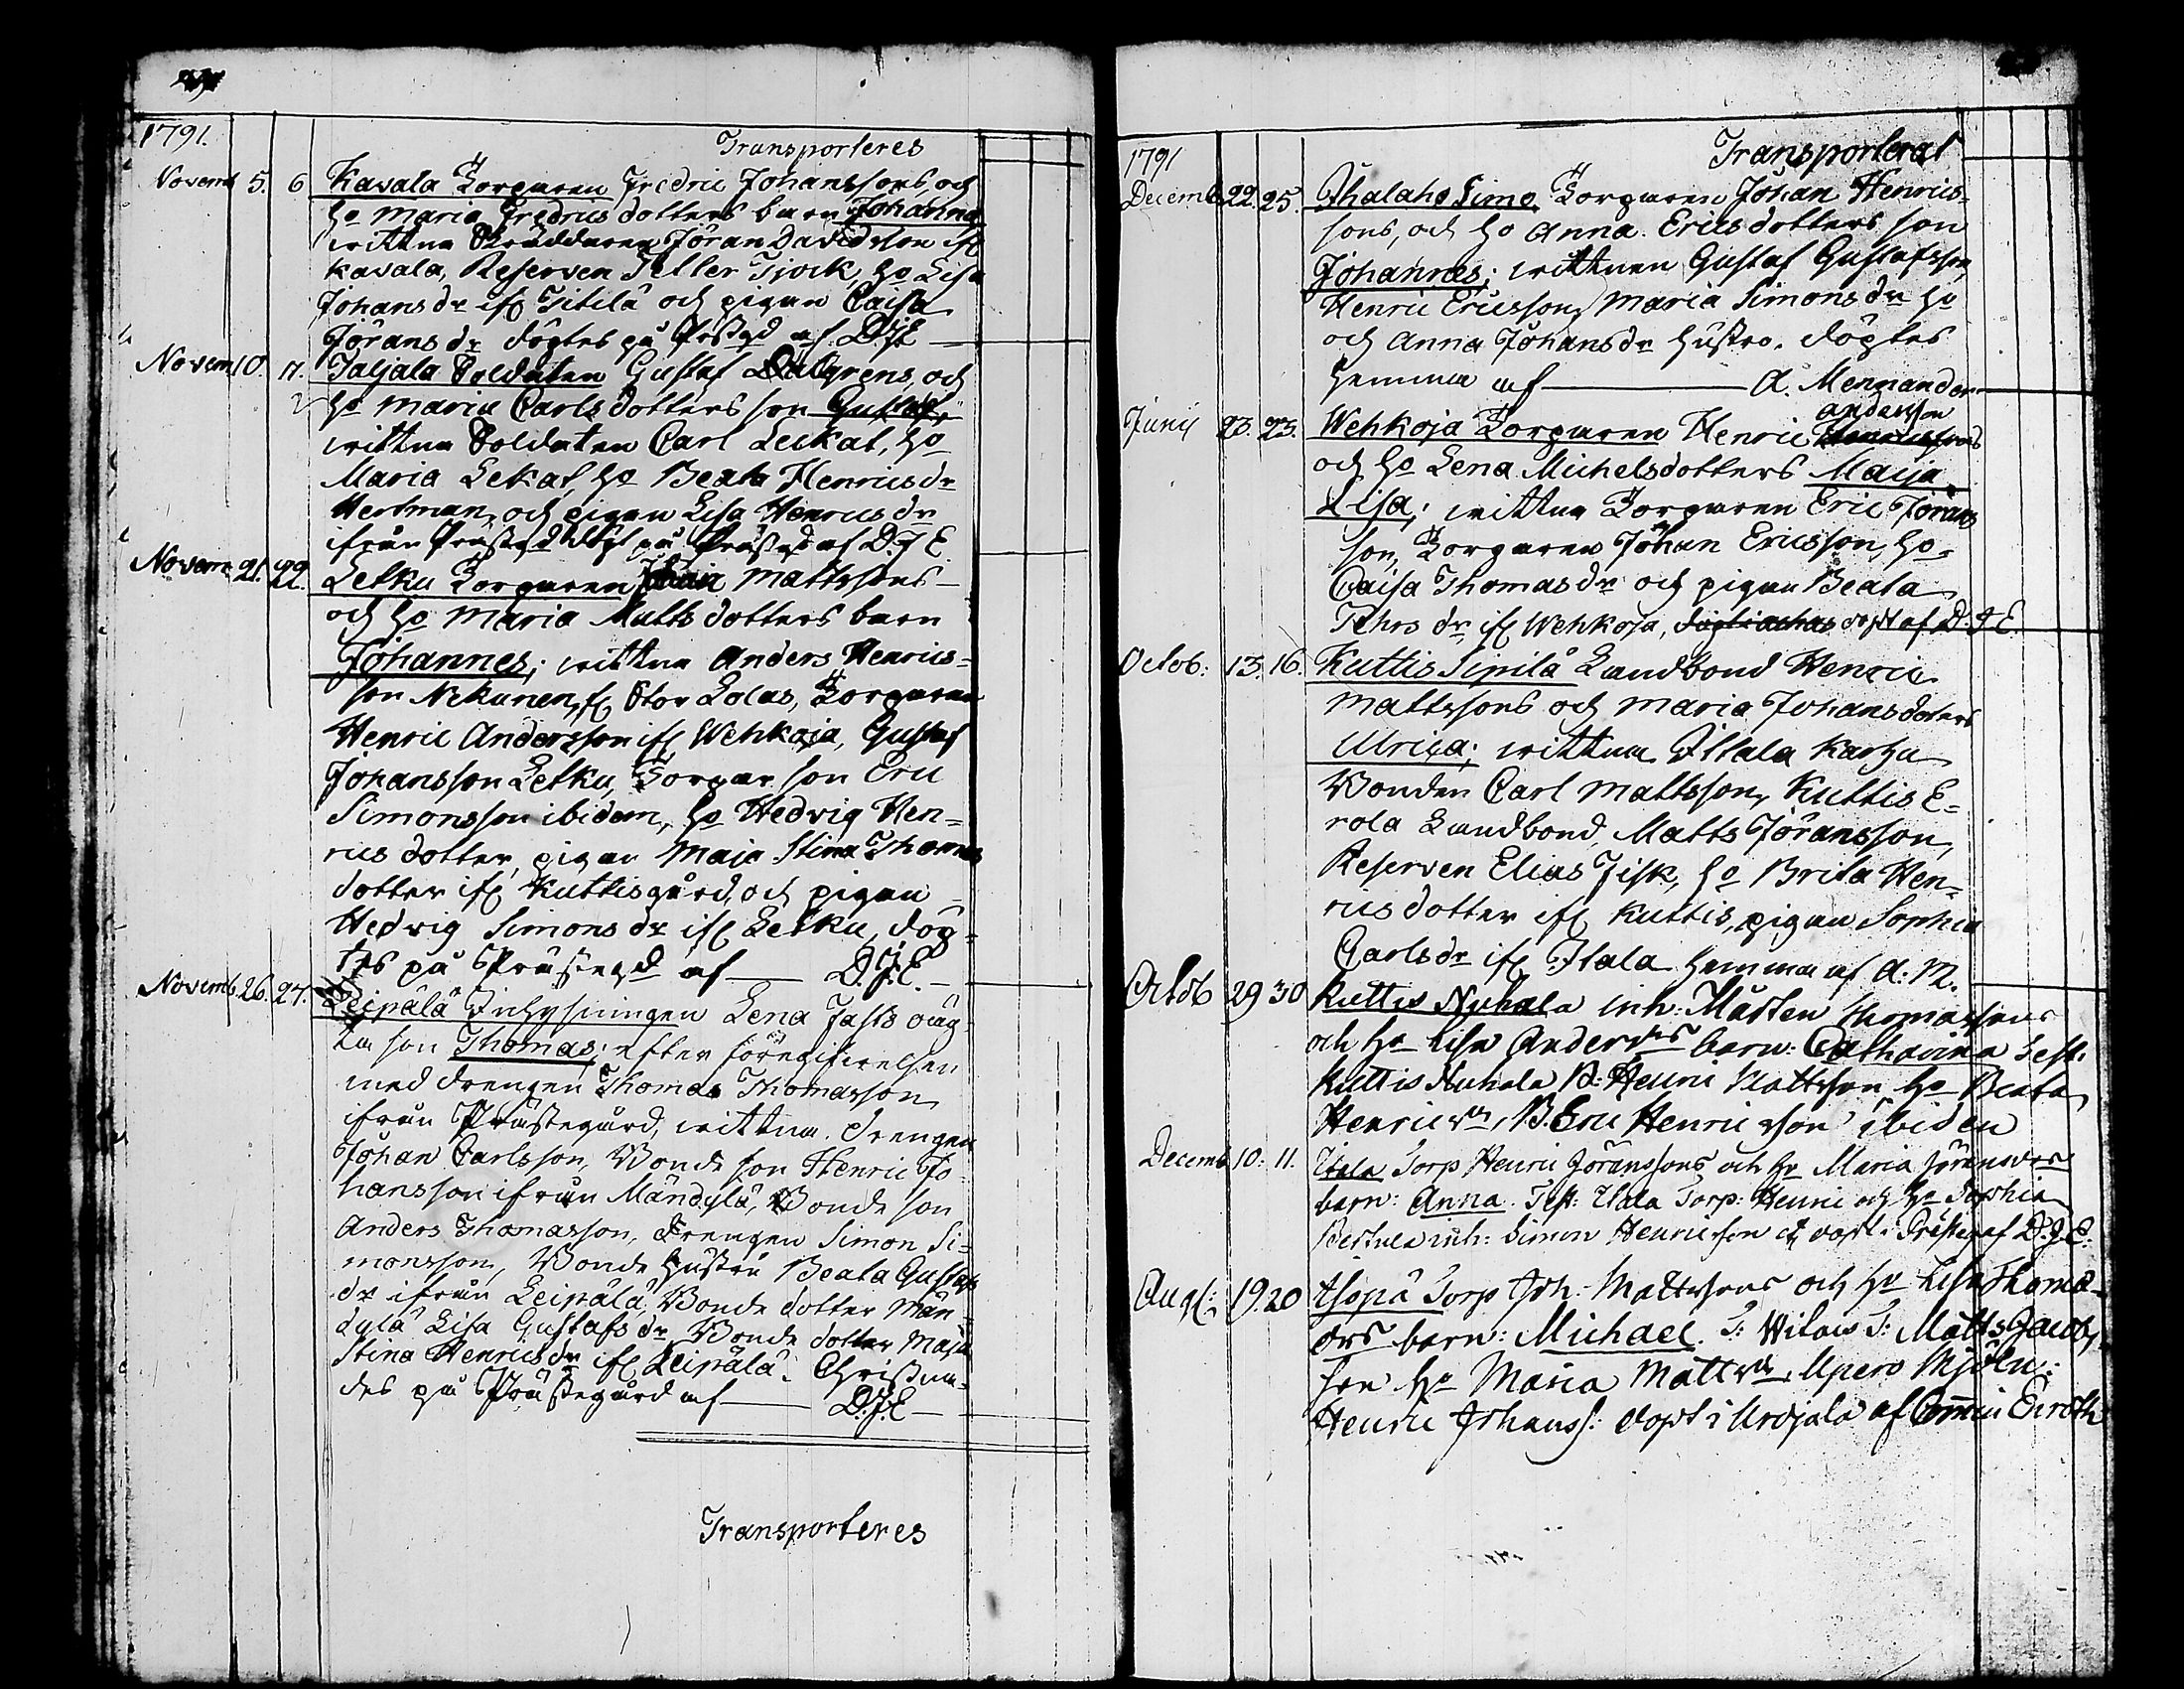 1791.
Transporteres
Novemb 5. 6 Kavala Torparen Fredric Johanssons, och
ho Maria Fredricsdotters barn Johanna
wittna Skräddaren Jöran Davidsson if
Kavala, Reserven Tjock, ho Lisa
Johansdr if Titilä och pigan Caisa
Jöransdr döptes på Prästgd af D.J.E
Novem 10. 11. Taljala Soldaten Gustaf Dalgrens, och
ho Maria Carlsdotters son Gustaf,
wittna Soldaten Carl Leekat, ho
Maria Lekat, ho Beata Henricsdr
Hertman, och pigan Lisa Henricsdr
ifrån Prästgd döpt på Prästgd af D.J.E.
Novem 21. 22. Letku Torparen Mattssons
och ho Maria Mattsdotters barn
Johannes; wittna Anders Henrics=
son Nekunen, if Stor Lolas, Torparen
Henric Andersson if Wehkoja, Gustaf
Johansson Letku, Torpar son Eric
Simonsson ibidem, ho Hedvig Hen=
ricsdotter, pigan Maja Stina Thomas
dotter if Kuttisgård, och pigan
Hedvig Simonsdr if Letku, döp=
tes på Prästegd af D.J.E.
Novemb 26. 27. Leipälä Inhysningen Lena Jafts oäg=
ta son Thomas; efter föregifwelsen
med drengen Thomas Thomasson
ifrån Prästegård, wittna. Drengen
Johan Carlsson, Bonde son Henric Jo=
hansson ifrån Mändylä, Bonde son
Anders Thomasson, Drengen Simon Si=
monsson, Bonde hustru Beata Gustafs
dr ifrån Leipälä, Bonde dotter Män
dylä Lisa Gustafsdr, Bonde dotter Maja
Stina Henricsdr if Leipälä. Christna=
des på Prästegård af D.J.E
Transporteres
1791
Transporterat
Decemb 22. 25. Thalaho Simo Torparen Johan Henrics=
sons, och ho Anna Ericsdotters son
Johannes; wittnen Gustaf Gustafsson,
Henric Ericsson, Maria Simonsdr ho
och Anna Johansdr hustro. döptes
hemma af A. Mennander
Andersson
Junij 23. 23. Wehkoja Torparen Henric
och ho Lena Michelsdotters Maja
Lisa; wittna Torparen Eric Jörans
son, Torparen Johan Ericsson, ho
Caisa Thomasdr och pigan Beata
Pehrsdr, if Wehkoja, döpt af D.J.E.
Octob: 13. 16. Kuttis Sipilä Landbond Henric
Mattssons och Maria Johansdoters
Ulrica; wittna Ittala Karhu
Bonden Carl Mattsson, Kuttis E=
rola Landbond, Matts Jöransson,
Reserven Elias Fisk, ho Brita Hen=
ricsdotter if Kuttis, pigan Sophia
Carlsdr if Itala hemma af A. M.
Octob 29 30 Kuttis Nuhala inh: Mårten Thomassons
och ho Lisa Andersdrs barn: Catharina Test:
Kuttis Nuhala B: Henric Mattsson ho Beata
Henricsdr, B. Eric Henricsson ibidem
Decemb 10. 11. Utala Torp Henric Jöranssons och ho Maria Jöransdrs
barn: Anna. Test: Utala Torp: Henric och ho Sophia
inh: Simon Henricsson döpt i Presteg af D.J.E.
Aug: 19. 20 Torp Joh: Mattssons och ho Lisa Thomæ
drs barn: Michael. T: T: Matts Jacobs
son ho Maria Mattsdr, Upero Mjöln:
Henric Johanss: döpt i Urdjala af Com̄in: Eiroth